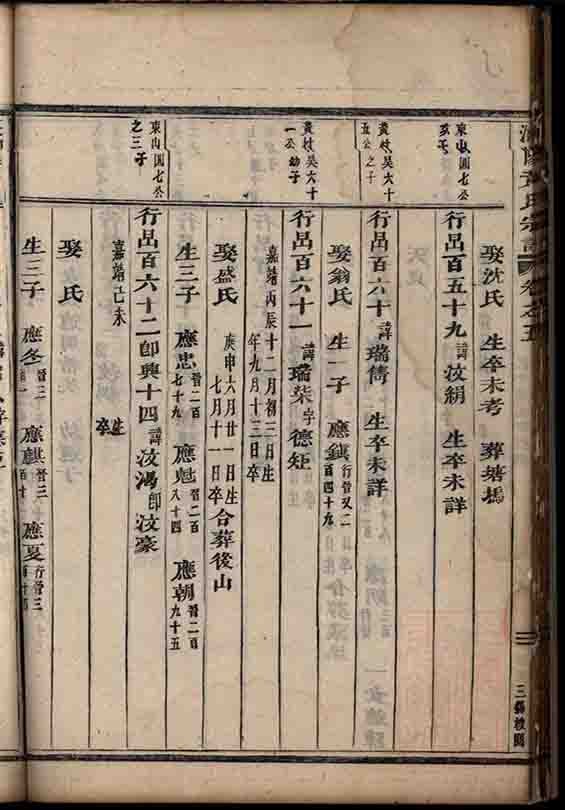 氏宗譜 卷之五
三
娶沈氏 生卒未考 葬塘塢
東山園七公
行呂百五十九 諱汝絹 生卒未詳
黃岐吳六十五公之子
行呂百六十 諱瑞儁 生卒未詳
娶翁氏 生一子 應鎮 行晉又二百四十九
黃岐吳六十一公幼子
行呂百六十一 諱瑞柒 字德矩
嘉靖丙辰十二月初三日生
年九月十三日卒
娶盛氏 庚申六月廿一日生 七月十一日卒 合葬後山
生三子 應忠 晉二百七十九 應魁 晉二百八十四 應朝 晉二百九十五
東山園七公之三子
行呂百六十二 即興十四 諱汝鴻 即汝豪
嘉靖己未 生 卒
娶 氏
生三子 應冬 晉三 應麒 晉三 應夏 行晉三